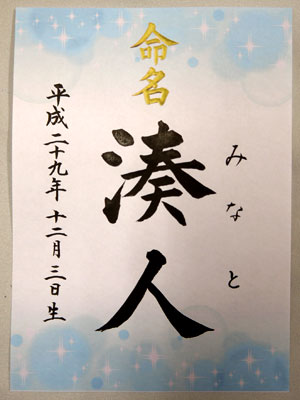 命名
湊人
みなと
平成二十九年十二月三日生